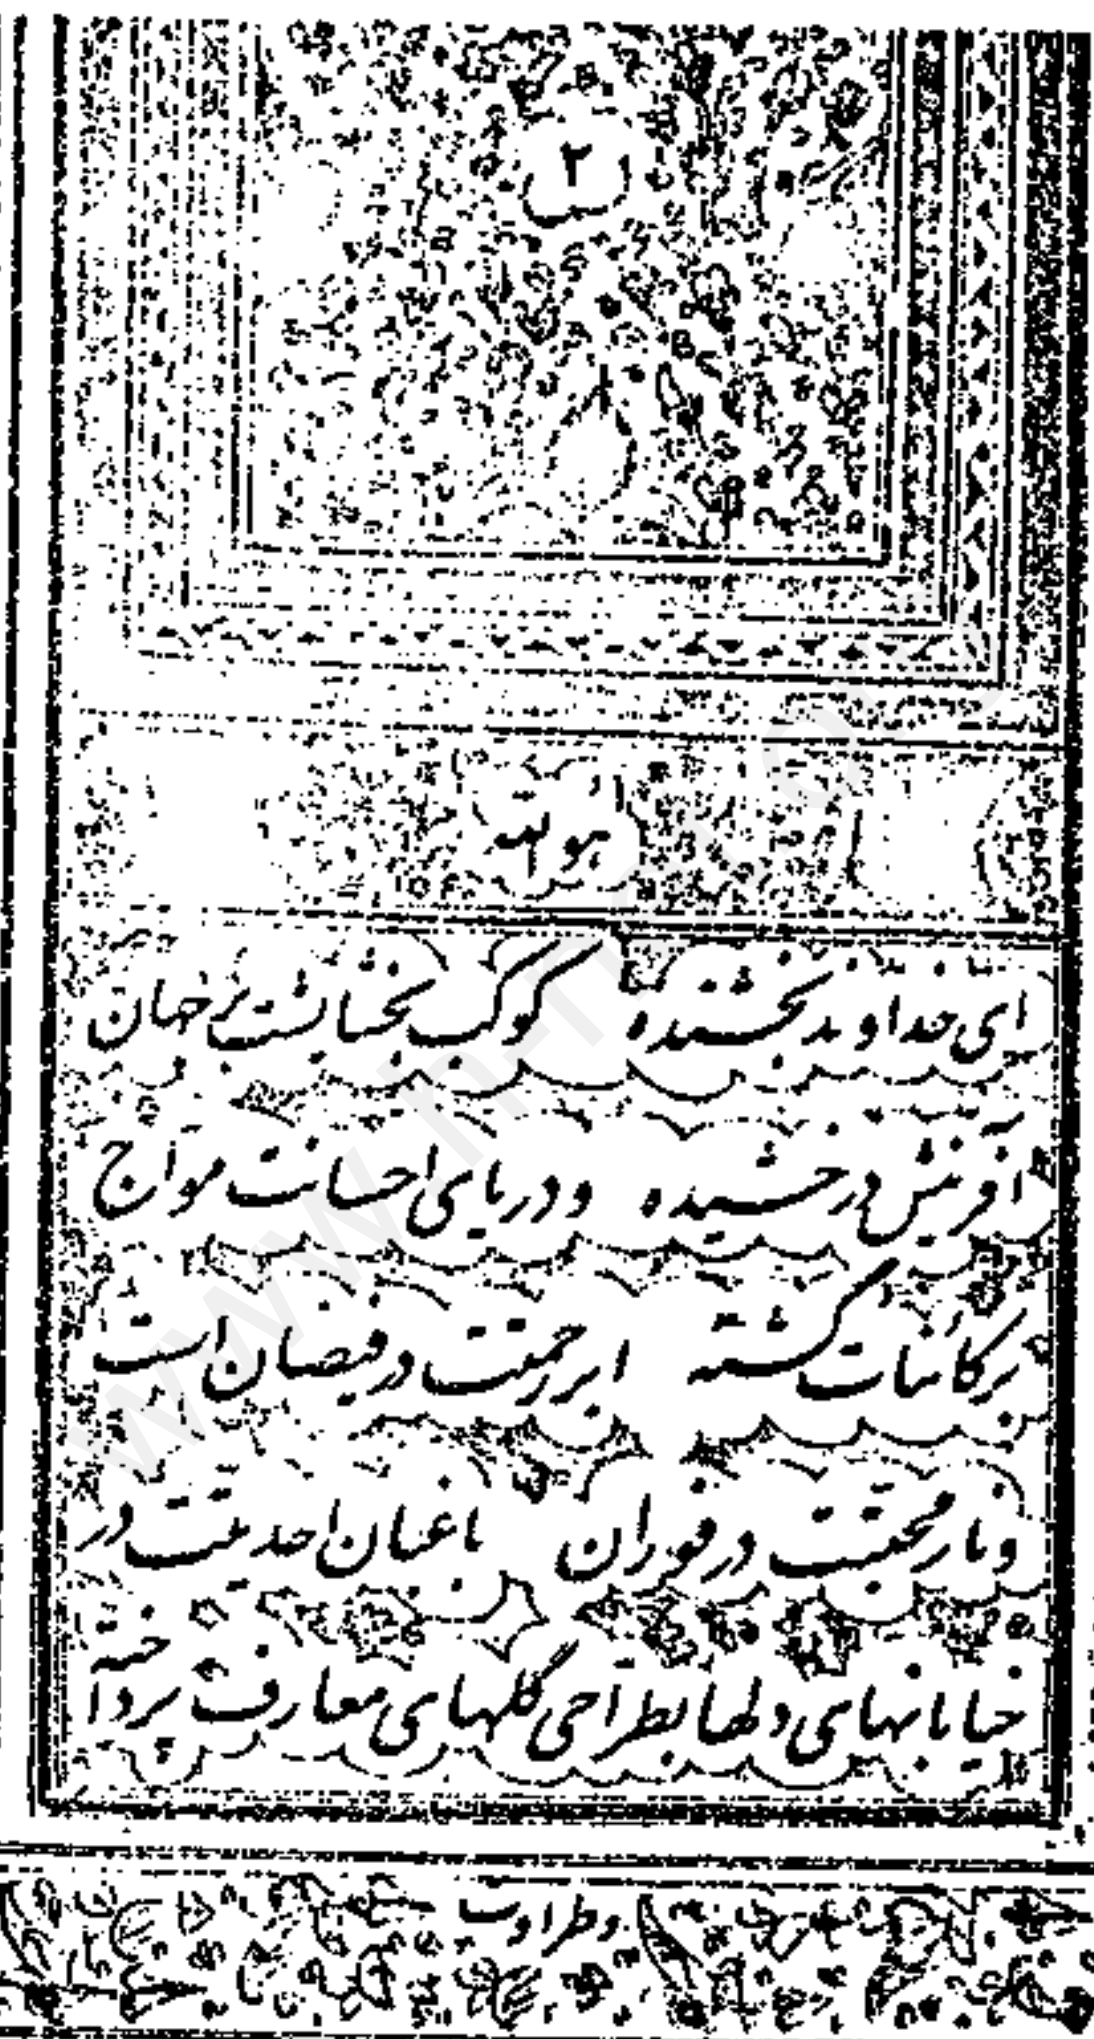 ٢
هو الله
ای خداوند بخشنده کوکب بخشایشت بر جهان
آفرینش درخشیده و دریای احسانت موّاج
بر کائنات گشته ابر رحمتت در فیضان است
و نار محبّتت در فوران باغبان احدیّتت در
خیابانهای دلها بطرّاحی گلهای معارف پرداخته
وطراوت